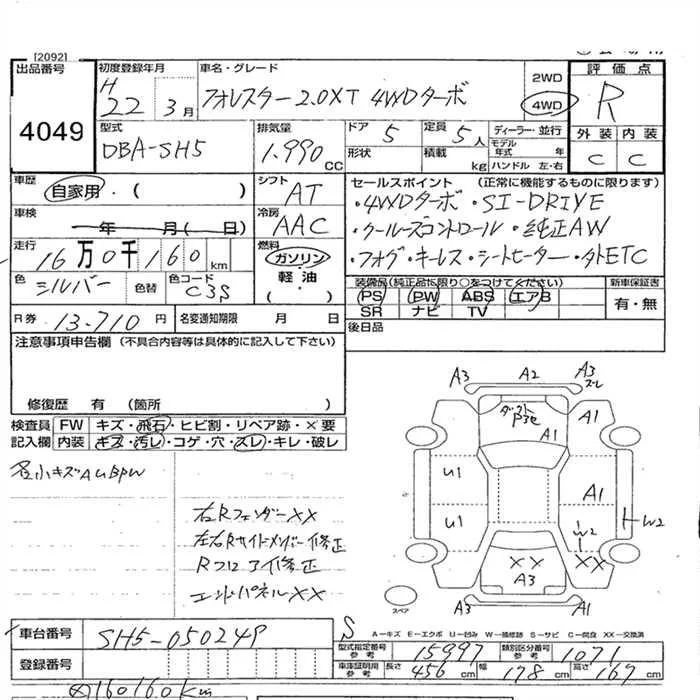 [2092]
出品番号 初度登録年月 車名・グレード 2WD 評価点
4049 H22 3月 フォレスター2.0XT 4WDターボ 4WD R
型式 排気量 ドア 定員 ディーラー・並行 外装 内装
DBA-SH5 1.990CC 5 5人 モデル年式 年 C C
形状 積載 kg ハンドル 左・右
車歴 自家用・( ) シフト AT セールスポイント (正常に機能するものに限ります)
車検 年 月(日) 冷房 AAC ・4WDターボ・SI-DRIVE
・クルーズコントロール・純正AW
走行 16万0千160km 燃料 ガソリン・軽油・( ) ・フォグ・キーレス・シートヒーター・外ETC
色 シルバー 色替 色コード C3S
装備品(純正品に限り○をつけてください) 新車保証書
PS PW ABS エアB 有・無
SR ナビ TV
R券 13.710円 名変通知期限 月 日 後日品
注意事項申告欄 (不具合内容等は具体的に記入して下さい)
修復歴 有 (箇所 )
検査員記入欄 FW キズ・飛石・ヒビ割・リペア跡・×要
内装 キズ・汚レ・コゲ・穴・スレ・キレ・破レ
各小キズAUBPW
右Rフェンダー××
左右Rサイドメンバー修正
Rフロア修正
エンドパネル××
A3 A2 A3
スレ
A1
A1
U1 A1
U1 W2 W2
×× ××
A3
スペア
A3 A3
A-キズ E-エクボ U-凹み W-補修跡 S-サビ C-腐食 XX-交換済
車台番号 SH5-050249 S 型式指定番号 参考 15997 類別区分番号 参考 1071
登録番号 車庫証明用 参考 長さ 456cm 幅 178cm 高さ 167cm
160160km